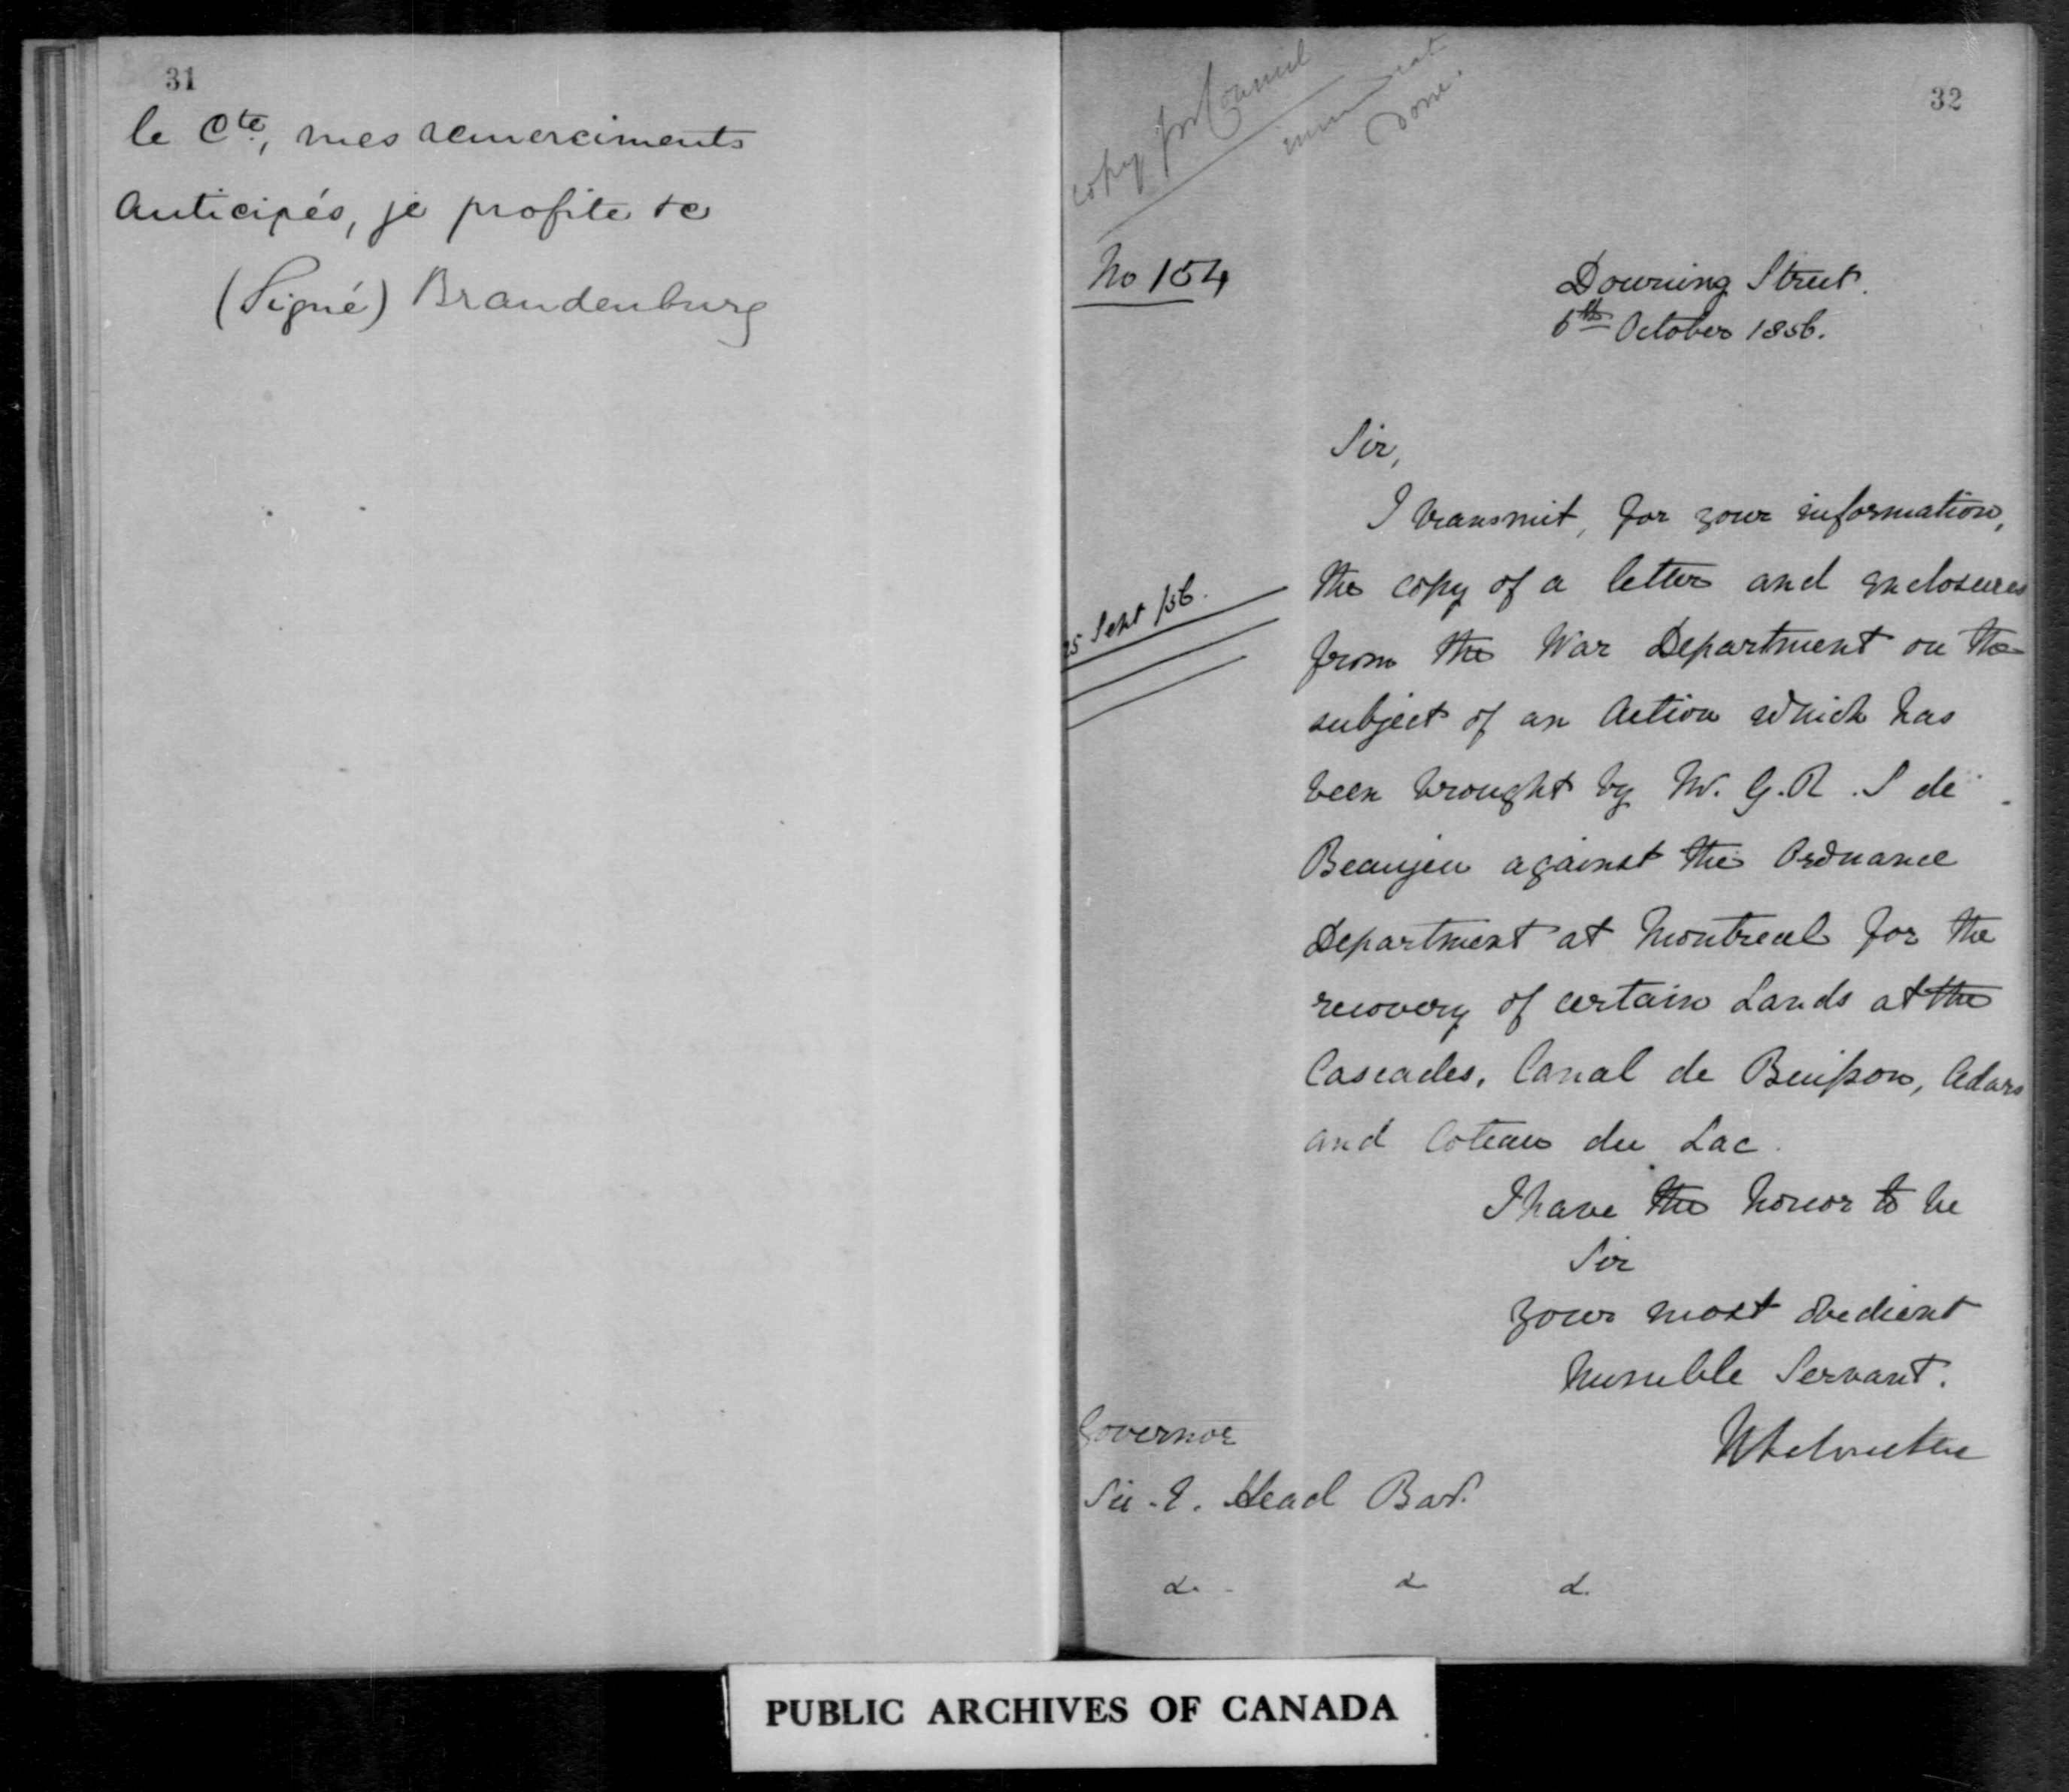 31
le Cte, mes remerciments
Anticipés, je profite &c
(Signé) Brandenburg
32
copy for Council
Done.
No 154
Downing Street.
6th October 1856.
Sir,
I transmit, for your information,
the copy of a letter and enclosures
25 Sept /56.
from the War Department on the
subject of an Action which has
been brought by M. G. R. S de
Beaujeu against the Ordnance
Department at Montreal for the
recovery of certain Lands at the
Cascades, Canal de Buisson, Cedars
and Coteau du Lac.
I have the honor to be
Sir
your most obedient
humble Servant.
Governor
Sir E. Head Bart.
&. & &.
PUBLIC ARCHIVES OF CANADA